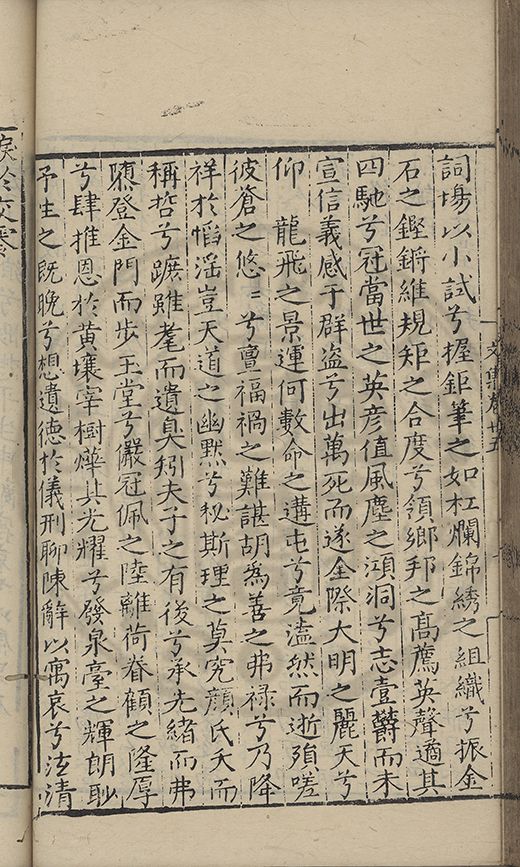 文集卷廿五
詞場以小試兮握鉅筆之如杠爛錦綉之組織兮振金
石之鏗鏘維規矩之合度兮領鄉邦之髙薦英聲適其
四馳兮冠當世之英彦值風塵之澒洞兮志壹欝而未
宣信義感于群盗兮出萬死而遂全際大明之麗天兮
仰 龍飛之景運何數命之遘屯兮竟溘然而逝殞嗟
彼蒼之悠〻兮亶福禍之難諶胡為善之弗禄兮乃降
祥於慆滛豈天道之幽默兮秘斯理之莫究顔氏夭而
稱哲兮蹠雖耄而遺臭矧夫子之有後兮承先緒而弗
隳登金門而步玉堂兮儼冠佩之陸離荷眷顧之隆厚
兮肆推恩於黄壤宰樹燁其光耀兮發泉臺之輝朗耿
予生之既晚兮想遺德於儀刑聊陳辭以寓哀兮泫清